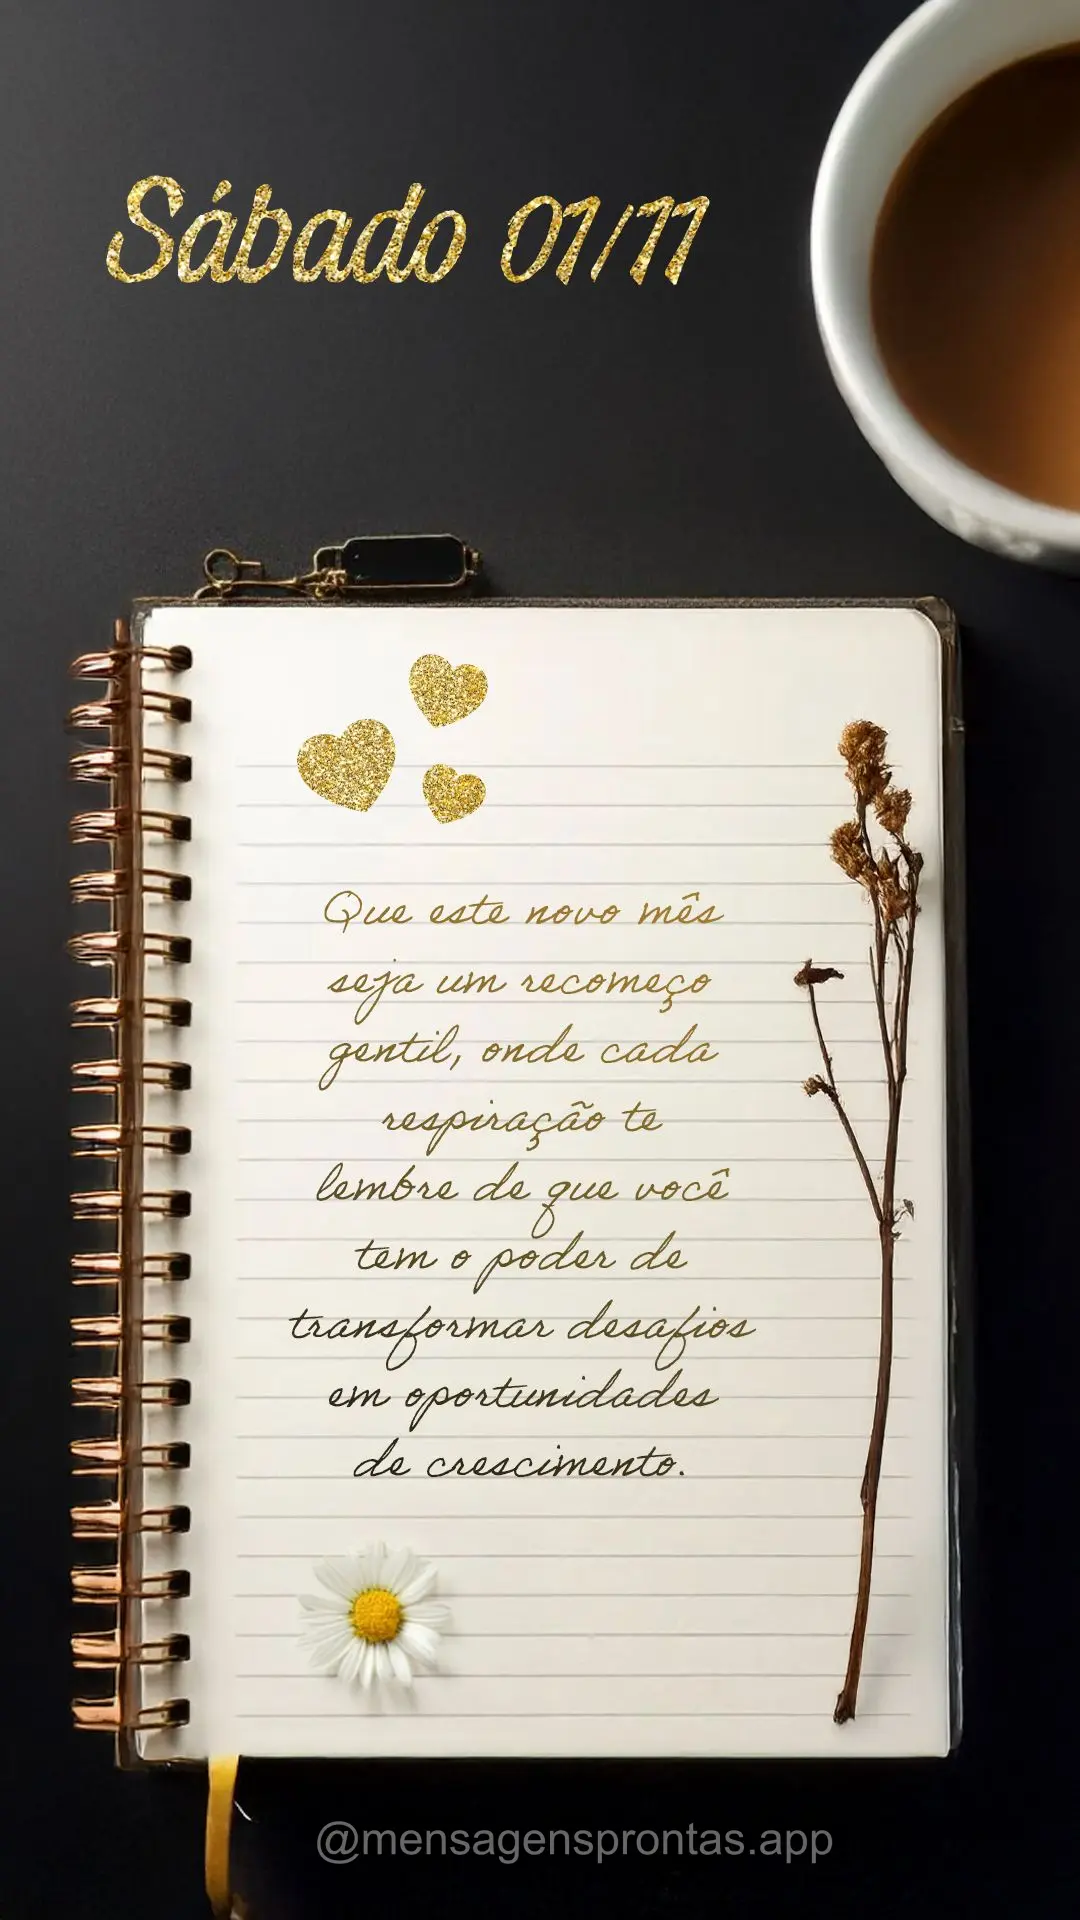 Sábado 01/11
Que este novo mês
seja um recomeço
gentil, onde cada
respiração te
lembre de que você
tem o poder de
transformar desafios
em oportunidades
de crescimento.
@mensagensprontas.app